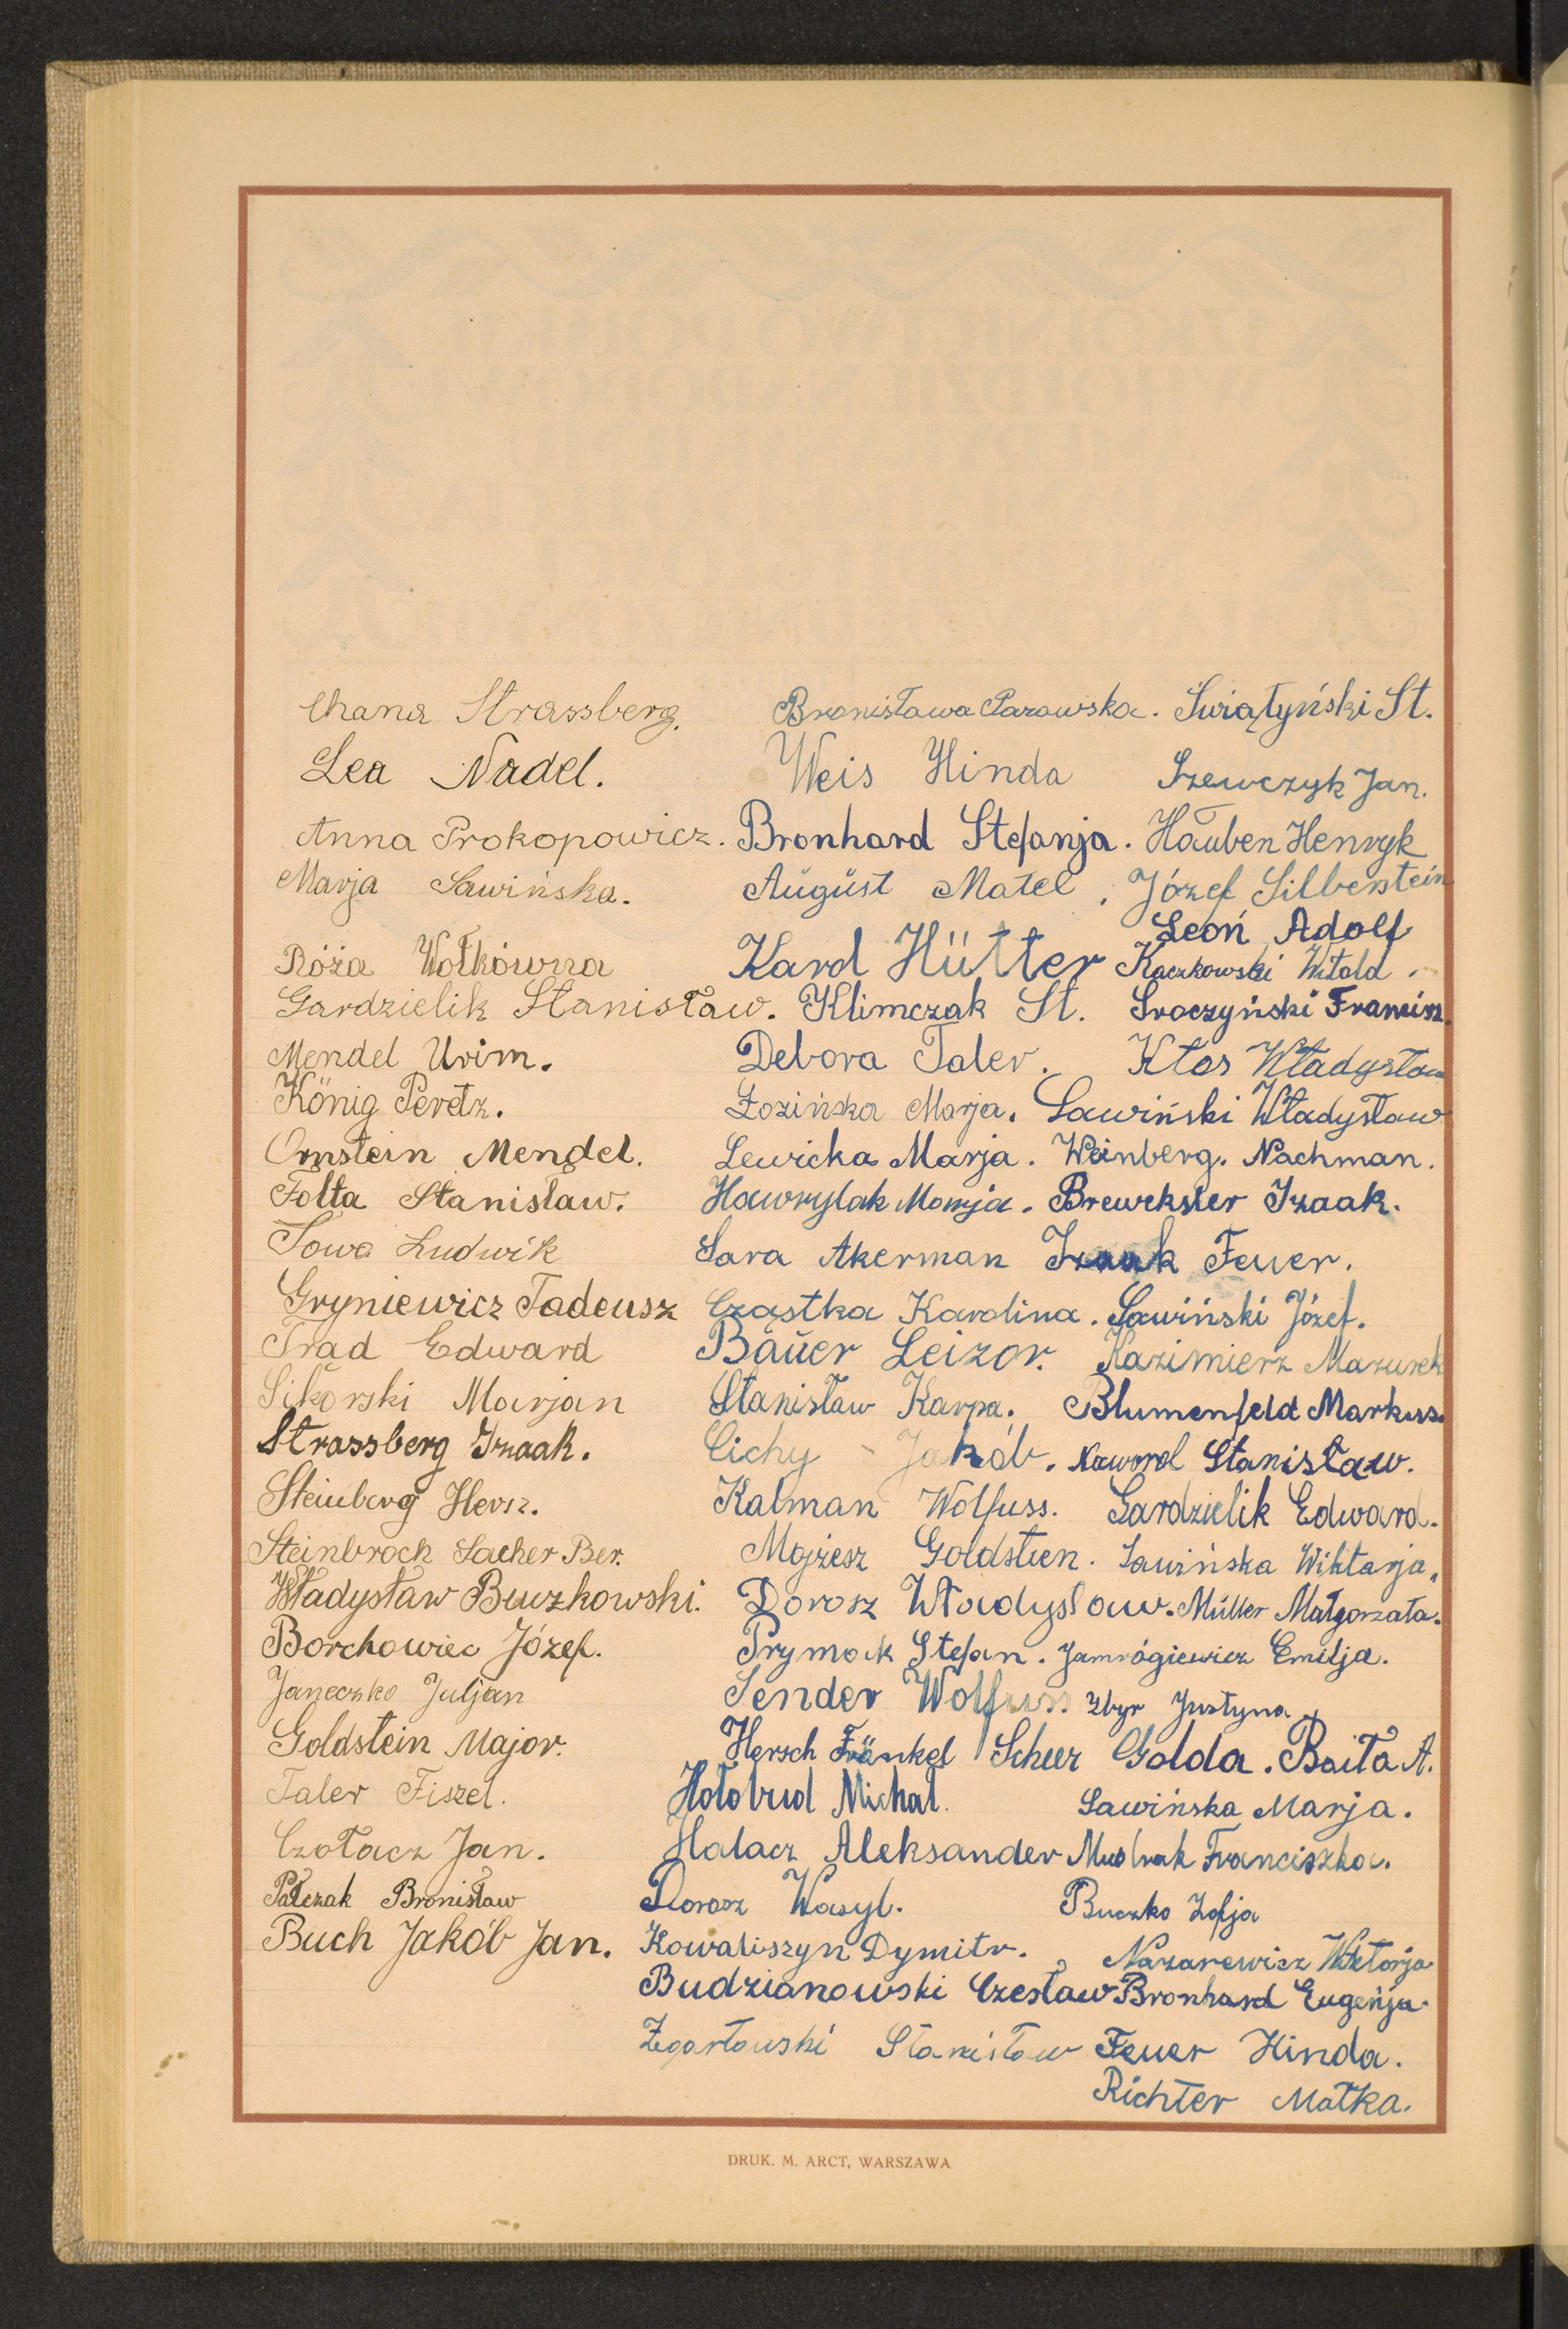 Chana Strassberg.
Lea Nadel.
Anna Prokopowicz.
Marja Sawińska.
Róża Wołkówna
Gardzielik Stanisław.
Mendel Urim.
König Peretz.
Ornstein Mendel.
Fołta Stanisław.
Sowa Ludwik
Gryniewicz Tadeusz
Trad Edward
Sikorski Marjan
Strassberg Izaak.
Steinberg Hersz.
Steinbrock Sacher Ber.
Władysław Buczkowski.
Borchowiec Józef.
Janeczko Juljan
Goldstein Major.
Taler Fiszel.
Czołacz Jan.
Palczak Bronisław
Buch Jakób Jan.
Bronisława Parowska.
Weis Hinda
Bronhard Stefanja.
August Matel.
Karol Hütter
Klimczak St.
Debora Taler.
Łozińska Marja.
Lewicka Marja.
Hawrylak Marja.
Sara Akerman
Cząstka Karolina.
Bauer Leizor.
Stanisław Karpa.
Cichy Jakób.
Kalman Wolfuss.
Mojżesz Goldstien.
Dorosz Władysław.
Prymak Stefan.
Sender Wolfuss.
Hersch Fränkel
Hołobud Michał.
Halacz Aleksander
Dorosz Wasyl.
Kowaliszyn Dymitr.
Budzianowski Czesław
Stanisław
Świątyński St.
Szewczyk Jan.
Hauben Henryk
Józef Silberstein
Leon Adolf
Kaczkowski Witold.
Sroczyński
Kłos Władysław
Sawiński Władysław
Weinberg. Nachman.
Breweksler Izaak.
Izaak Feuer.
Sawiński Józef.
Kazimierz Mazurek
Blumenfeld Markus.
Nawrol Stanisław.
Gardzielik Edward.
Sawińska Wiktarja.
Müller Małgorzata.
Jamrógiewicz Emilja.
Zbyr Justyna
Scheer Golda. Baita A.
Sawińska Marja.
Franciszka.
Buczko Zofja
Nazarewisz Wiktorja
Bronhard Eugenja.
Feuer Hinda.
Richter Matka.
DRUK. M. ARCT, WARSZAWA